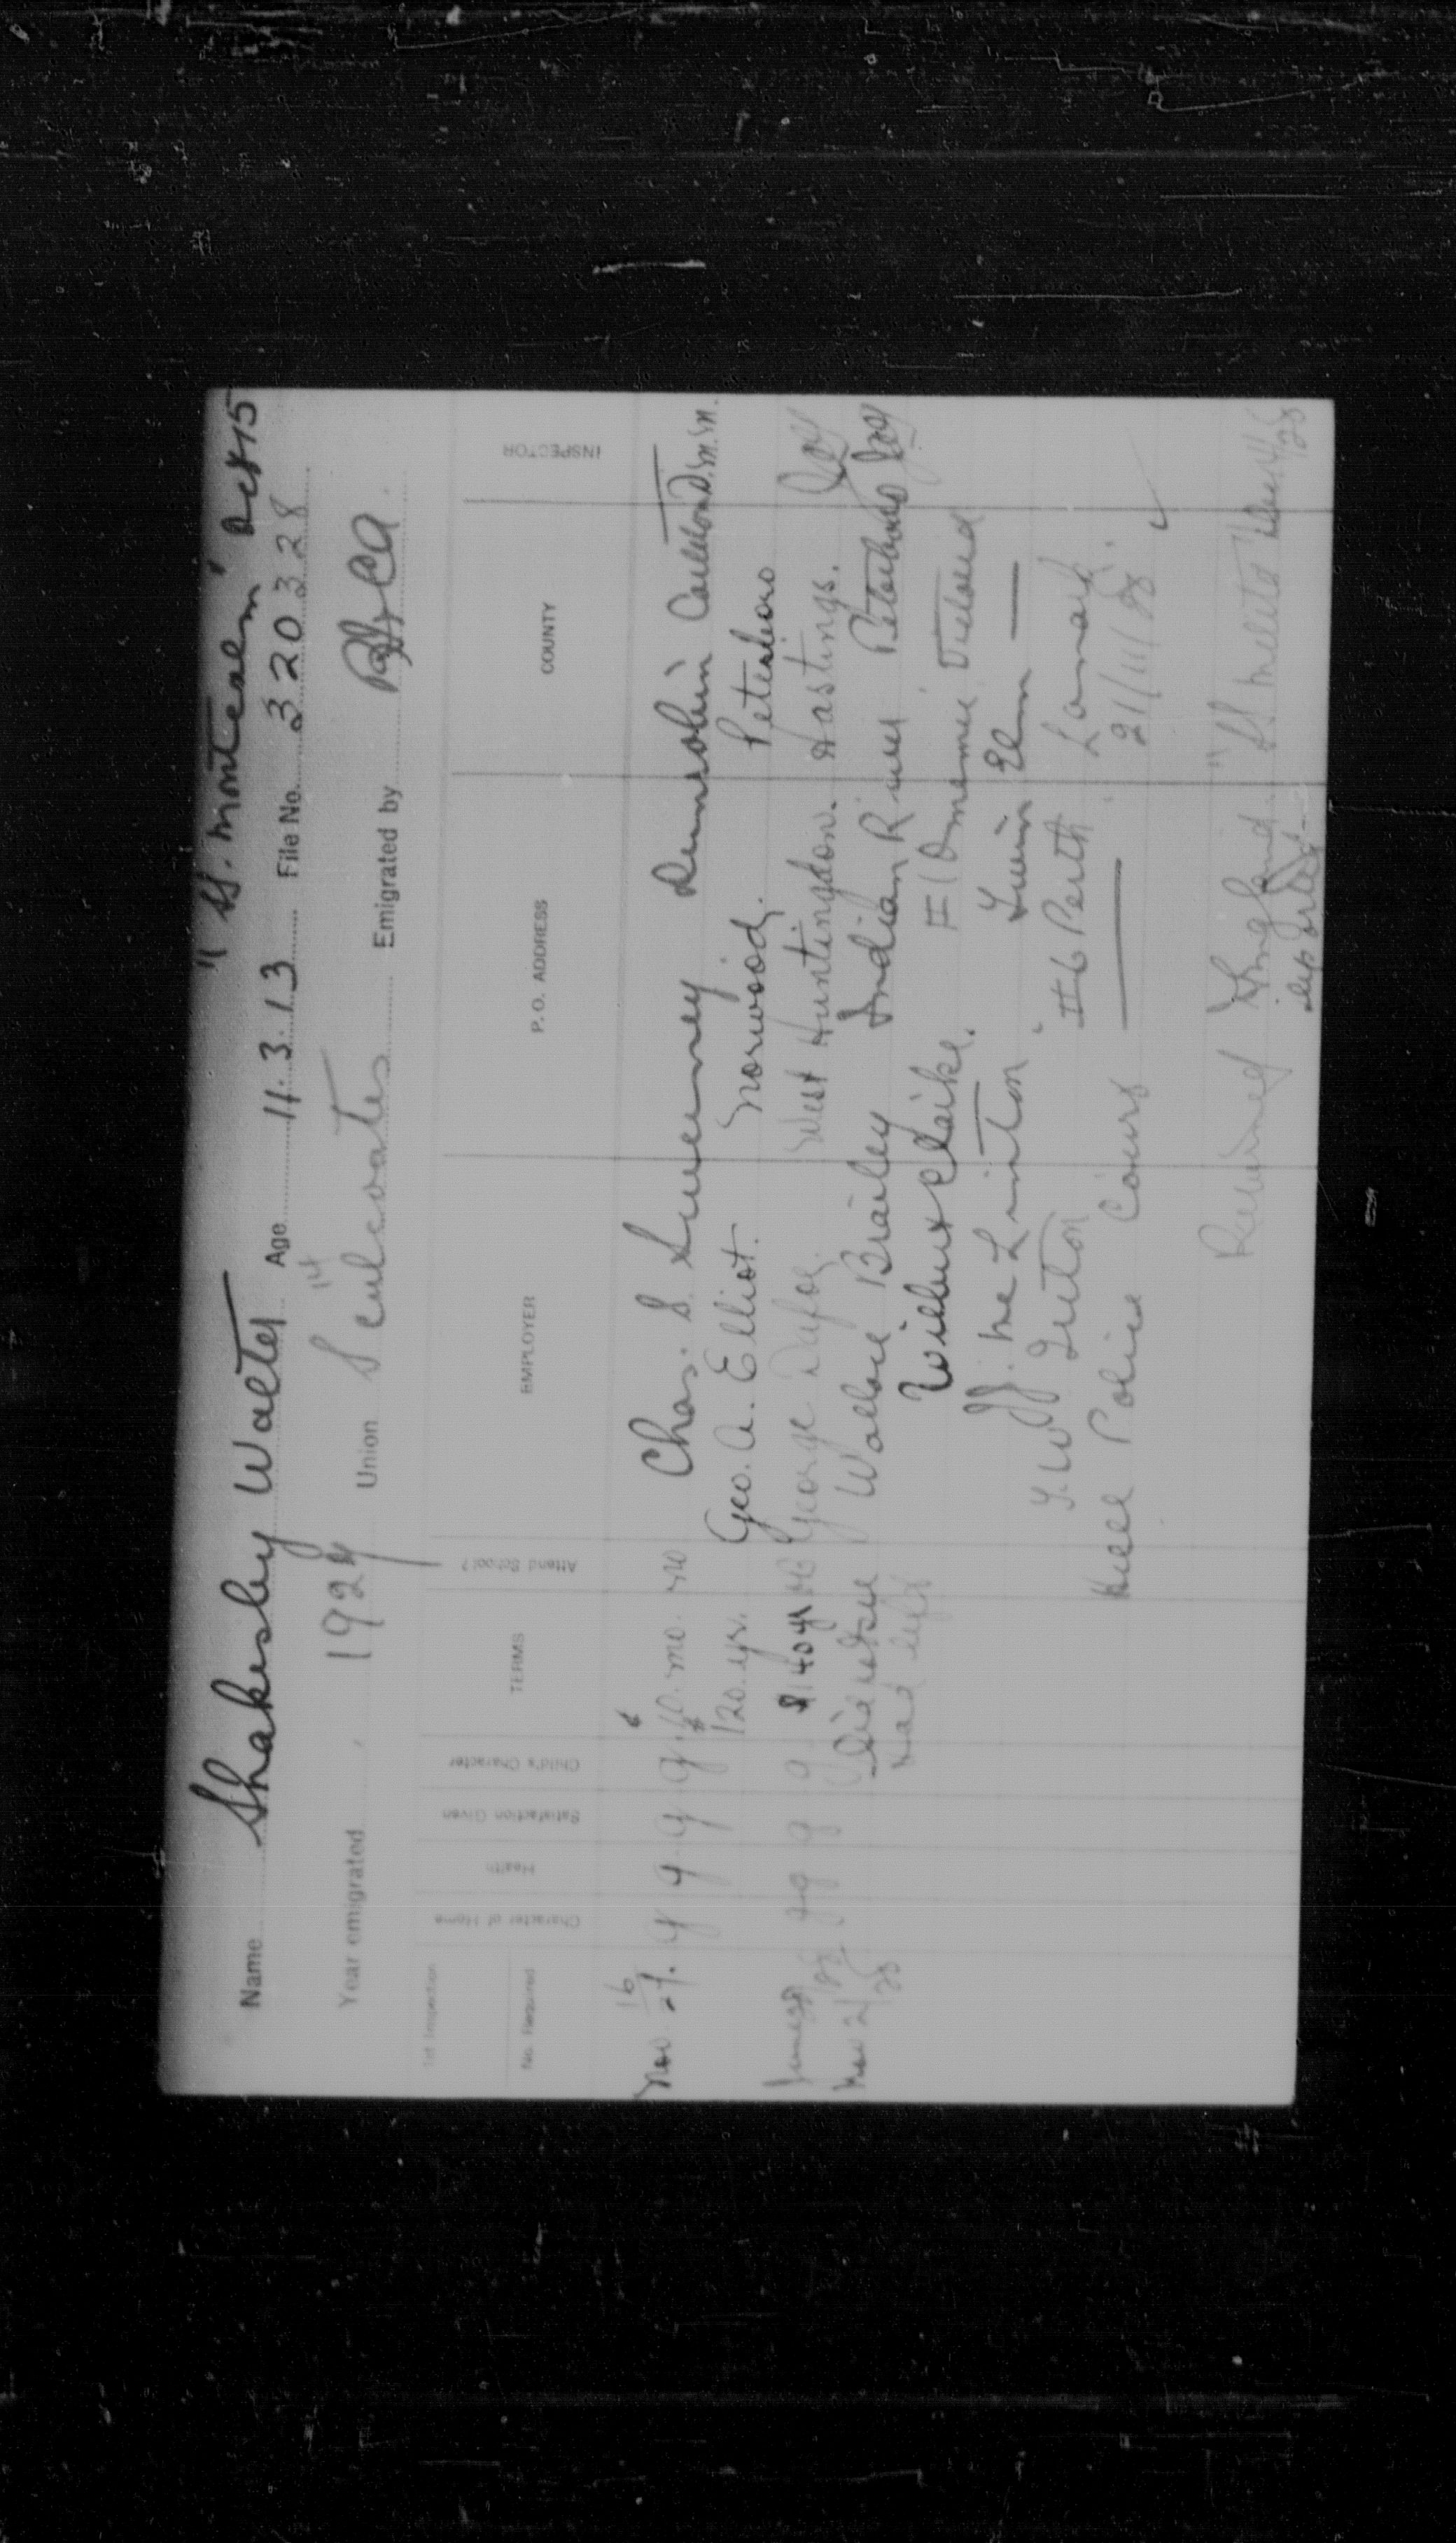 "SS. Montcalm" Oct 15
Name Shakesby Walter Age 11.3.13 File No. 320328
14
Year emigrated 1927 Union Sculcoates Emigrated by
1st Inspection
No. Required Character of Home Health Satisfaction Given Child's Character TERMS Attend School? EMPLOYER P.O. ADDRESS COUNTY INSPECTOR
Nov. 16/27. g g g g 10. mo. no Chas. S. Sweeney Dunrobin Carleton D.M.M.
$120. yr. Geo. A. Elliot. Norwood. Peterboro
June g g g g $140 yr no George Dafoe. West Huntingdon. Hastings.
Nov 2/28 Did not see Wallace Brailey Indian River Peterboro
had left Wilbur Clarke. #1 Omemee Victoria
J. McLinton Twin Elm —
T. W. Dutton #6 Perth Lanark
Hull Police Court — 21/11/28
Returned England. "SS Melita"
deported